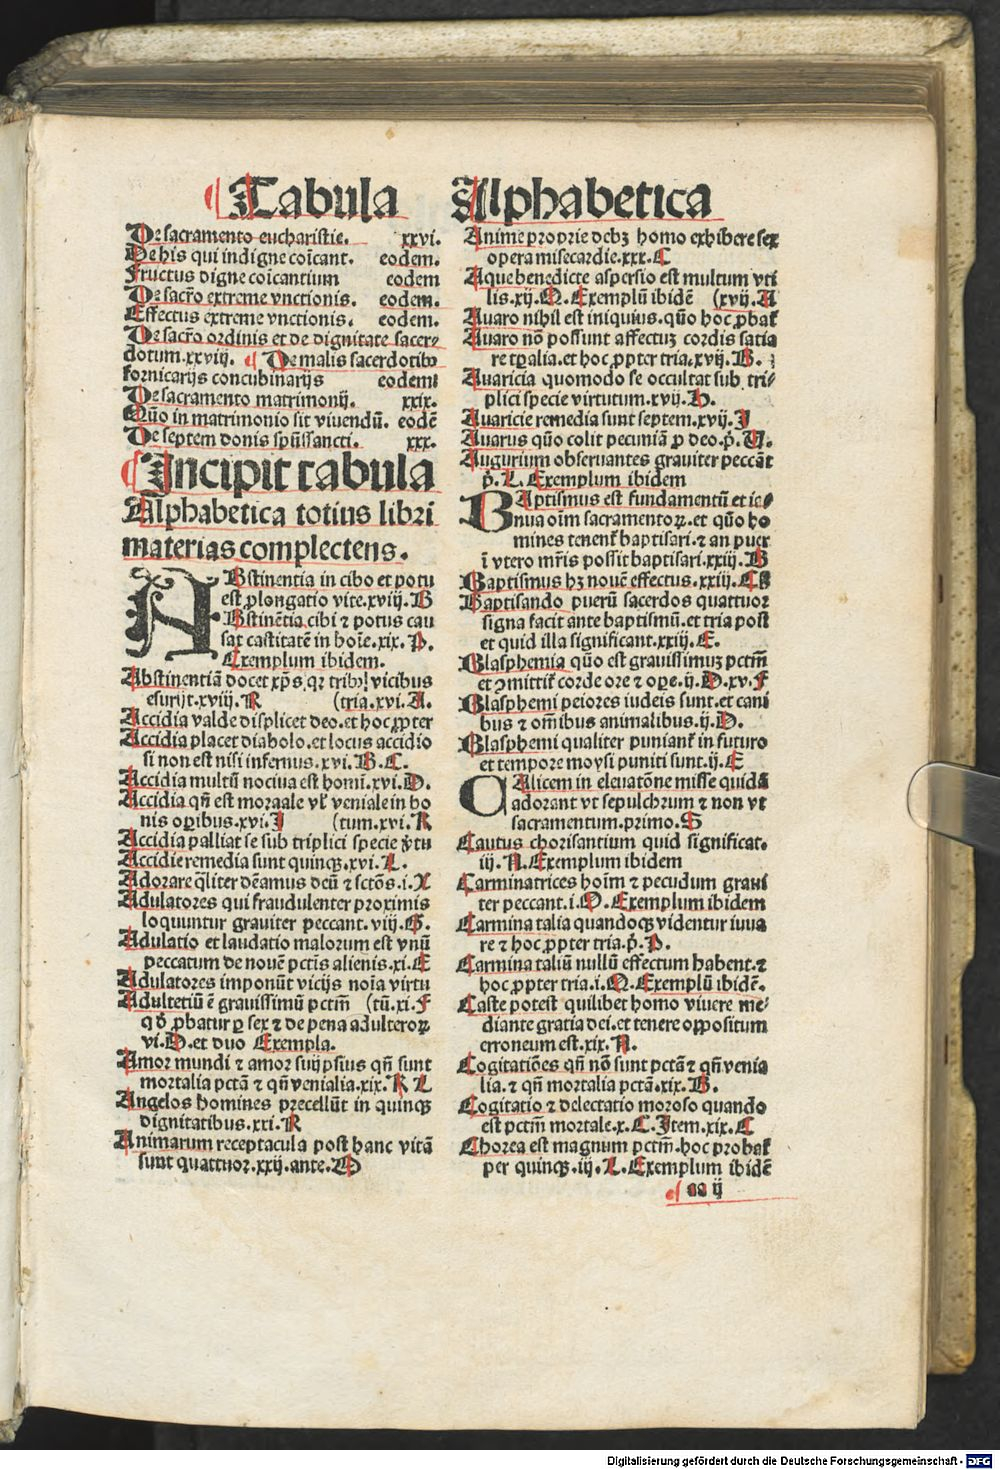 ¶ Tabula Alphabetica
De sacramento eucharistie. xxvi.
De his qui indigne coīcant. eodem.
Fructus digne coīcantium eodem
De sacr̄o extreme vnctionis. eodem.
Effectus extreme vnctionis. eodem.
De sacr̄o ordinis et de dignitate sacer-
dotum. xxviij. ¶ De malis sacerdotibꝰ
fornicarijs concubinarijs eodem
De sacramento matrimonij. xxix.
Quō in matrimonio sit viuendū. eodē
De septem donis spūssancti. xxx.
¶ Incipit tabula
Alphabetica totius libri
materias complectens.
ABstinentia in cibo et potu
est ꝓlongatio vite. xviij. B
Abstinētia cibi ⁊ potus cau
sat castitatē in hoīe. xix. P.
Exemplum ibidem.
Abstinentiā docet xp̄s qꝛ tribꝰ vicibus
esurijt. xviij. R (tria. xvi. A.
Accidia valde displicet deo. et hoc ꝓpter
Accidia placet diabolo. et locus accidio
si non est nisi infernus. xvi. B. C.
Accidia multū nociua est homī. xvi. D.
Accidia qn̄ est mortale vl' veniale in bo
nis oꝑibus. xvi. I (tum. xvi. K
Accidia palliat se sub triplici specie v̓tu
Accidie remedia sunt quinqꝫ. xvi. L.
Adorare q̄liter dēamus deū ⁊ sctōs. i. X
Adulatores qui fraudulenter proximis
loquuntur grauiter peccant. viij. G.
Adulatio et laudatio malorum est vnū
peccatum de nouē pctīs alienis. xi. E
Adulatores imponūt vicijs noīa virtu
Adulteriū ē grauissimū pctm̄ (tū. xi. F
qđ ꝓbatur ꝑ sex ⁊ de pena adulteroꝝ
vi. D. et duo Exempla.
Amor mundi ⁊ amor suijpsius qn̄ sunt
mortalia pctā ⁊ qn̄ venialia. xix. K L
Angelos homines precellūt in quinqꝫ
dignitatibus. xxi. R
Animarum receptacula post hanc vitā
sunt quattuor. xxij. ante. D
Anime proprie debꝫ homo exhibere sex
opera misecardie. xxx. C
Aque benedicte aspersio est multum vti
lis. xij. M. Exemplū ibidē (xvij. A
Auaro nihil est iniquius. quō hoc ꝓbat̄
Auaro nō possunt affectuꝫ cordis satia
re tꝑalia. et hoc ꝓpter tria. xvij. B.
Auaricia quomodo se occultat sub tri-
plici specie virtutum. xvij. H.
Auaricie remedia sunt septem. xvij. I
Auarus quō colit pecuniā ꝓ deo. p̄. U.
Augurium obseruantes grauiter peccāt
p̄. L. Exemplum ibidem
BAptismus est fundamentū et ia-
nua oīm sacramentoꝝ. et quō ho
mines tenent̄ baptisari. ⁊ an puer
ī vtero mr̄is possit baptisari. xxiij. B
Baptismus hꝫ nouē effectus. xxiij. C
Baptisando puerū sacerdos quattuor
signa facit ante baptismū. et tria post
et quid illa significant. xxiij. E.
Blasphemia quō est grauissimuꝫ pctm̄
et ꝯmittit̄ corde ore ⁊ oꝑe. ij. D. xv. F
Blasphemi peiores iudeis sunt. et cani
bus ⁊ om̄ibus animalibus. ij. D.
Blasphemi qualiter puniant̄ in futuro
et tempore moysi puniti sunt. ij. E
CAlicem in eleuatōne misse quidā
adorant vt sepulchrum ⁊ non vt
sacramentum. primo. S
Cautus chorisantium quid significat.
iij. N. Exemplum ibidem
Carminatrices hoīm ⁊ pecudum graui
ter peccant. i. O. Exemplum ibidem
Carmina talia quandoqꝫ videntur iuua
re ⁊ hoc ꝓpter tria. p̄. P.
Carmina taliū nullū effectum habent. ⁊
hoc ꝓpter tria. i. Q. Exemplū ibidē.
Caste potest quilibet homo viuere me-
diante gratia dei. et tenere oppositum
erroneum est. xix. N.
Cogitatiōes qn̄ nō sunt pctā ⁊ qn̄ venia
lia. ⁊ qn̄ mortalia pctā. xix. B.
Cogitatio ⁊ delectatio moroso quando
est pctm̄ mortale. x. C. Item. xix. C
Chorea est magnum pctm̄. hoc probat̄
per quinqꝫ. iij. L. Exemplum ibidē
¶ aa ij
Digitalisierung gefördert durch die Deutsche Forschungsgemeinschaft - DFG